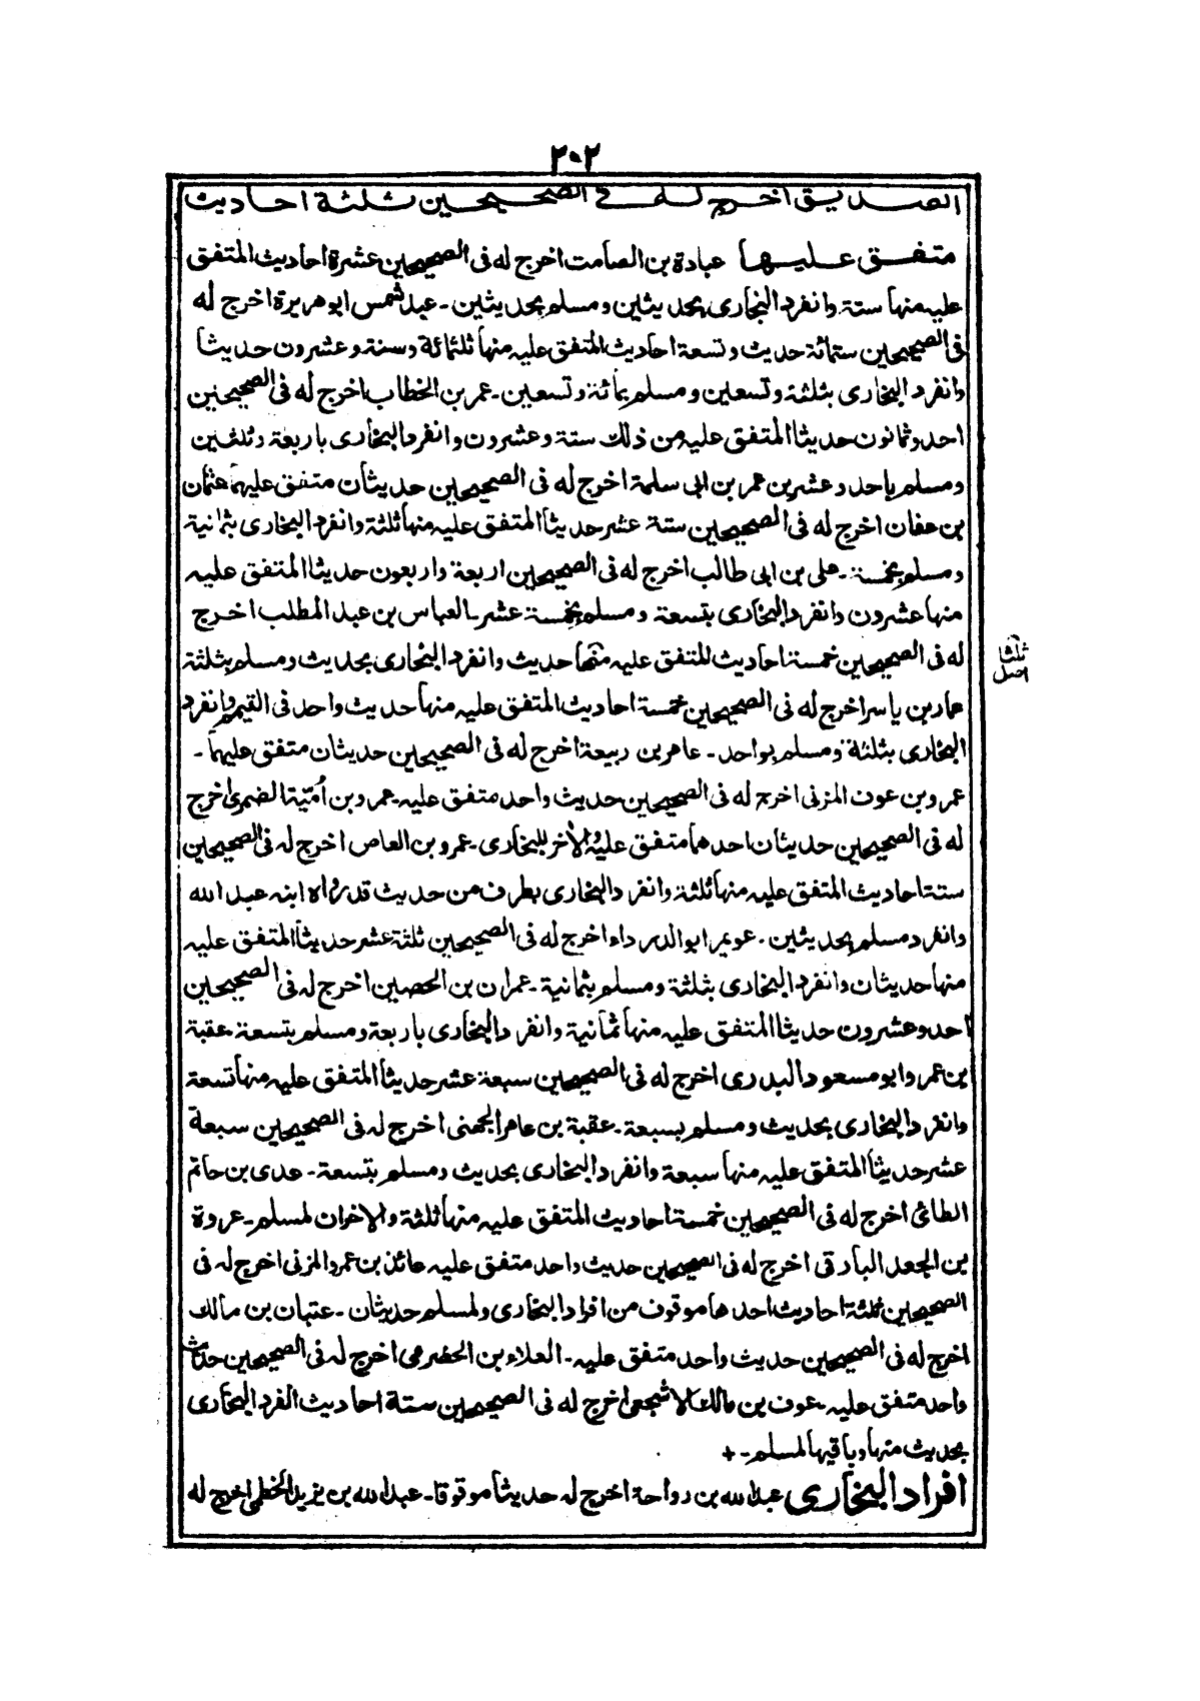 ٢٠٢
الصديق اخرج له فى الصحيحين ثلثة احاديث
متفق عليها عبادة بن الصامت اخرج له فى الصحيحين عشرة احاديث المتفق
عليه منها ستة وانفرد البخارى بحديثين ومسلم بحديثين ـ عبد شمس ابوهريرة اخرج له
فى الصحيحين ستمائة حديث وتسعة احاديث المتفق عليه منها ثلثمائة وستة وعشرون حديثا
وانفرد البخارى بثلثة وتسعين ومسلم بمائة وتسعين ـ عمر بن الخطاب اخرج له فى الصحيحين
احد وثمانون حديثا المتفق عليه من ذلك ستة وعشرون وانفرد البخارى باربعة وثلثين
ومسلم باحد وعشرين عمر بن ابى سلمة اخرج له فى الصحيحين حديثان متفق عليهما عثمان
بن عفان اخرج له فى الصحيحين ستة عشر حديثا المتفق عليه منها ثلثة وانفرد البخارى بثمانية
ومسلم بخمسة ـ على بن ابى طالب اخرج له فى الصحيحين اربعة واربعون حديثا المتفق عليه
منها عشرون وانفرد البخارى بتسعة ومسلم بخمسة عشر ـ العباس بن عبد المطلب اخرج
له فى الصحيحين خمسة احاديث المتفق عليه منها حديث وانفرد البخارى بحديث ومسلم بثلثة
ثلثا
اصل
عمار بن ياسر اخرج له فى الصحيحين خمسة احاديث المتفق عليه منها حديث واحد فى التيمم وانفرد
البخارى بثلثة ومسلم بواحد ـ عامر بن ربيعة اخرج له فى الصحيحين حديثان متفق عليهما ـ
عمرو بن عوف المزنى اخرج له فى الصحيحين حديث واحد متفق عليه ـ عمرو بن أمّية الضمرى اخرج
له فى الصحيحين حديثان احدهما متفق عليه والأخر للبخارى ـ عمرو بن العاص اخرج له فى الصحيحين
ستة احاديث المتفق عليه منها ثلثة وانفرد البخارى بطرف من حديث قد رواه ابنه عبد الله
وانفرد مسلم بحديثين ـ عويمر ابو الدرداء اخرج له فى الصحيحين ثلثة عشر حديثا المتفق عليه
منها حديثان وانفرد البخارى بثلثة ومسلم بثمانية ـ عمران بن الحصين اخرج له فى الصحيحين
احد وعشرون حديثا المتفق عليه منها ثمانية وانفرد البخارى باربعة ومسلم بتسعة عقبة
بن عمر وابو مسعود البدرى اخرج له فى الصحيحين سبعة عشر حديثا المتفق عليه منها تسعة
وانفرد البخارى بحديث ومسلم بسبعة ـ عقبة بن عامر الجهنى اخرج له فى الصحيحين سبعة
عشر حديثا المتفق عليه منها سبعة وانفرد البخارى بحديث ومسلم بتسعة ـ عدى بن حاتم
الطائى اخرج له فى الصحيحين خمسة احاديث المتفق عليه منها ثلثة والاخران لمسلم ـ عروة
بن الجعد البارقى اخرج له فى الصحيحين حديث واحد متفق عليه عائذ بن عمرو المزنى اخرج له فى
الصحيحين ثلثة احاديث احدها موقوف من افراد البخارى ولمسلم حديثان ـ عتبان بن مالك
اخرج له فى الصحيحين حديث واحد متفق عليه ـ العلاء بن الحضرمى اخرج له فى الصحيحين حديث
واحد متفق عليه ـ عوف بن مالك الاشجعى اخرج له فى الصحيحين ستة احاديث انفرد البخارى
بحديث منها وباقيها لمسلم ـ +
افراد البخارى عبد الله بن رواحة اخرج له حديثا موقوفا ـ عبد الله بن يزيد الخطمى اخرج له